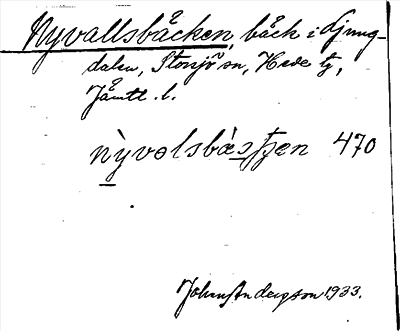 Nyvallsbäcken, bäck i Ljung-
dalen, Storsjö sn, Hede tg,
Jämtl. l.
nỳvolsbàstʃen 470
Johan Anderson 1933.